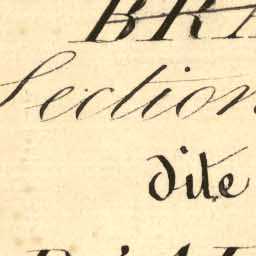 BRA
Section
dite